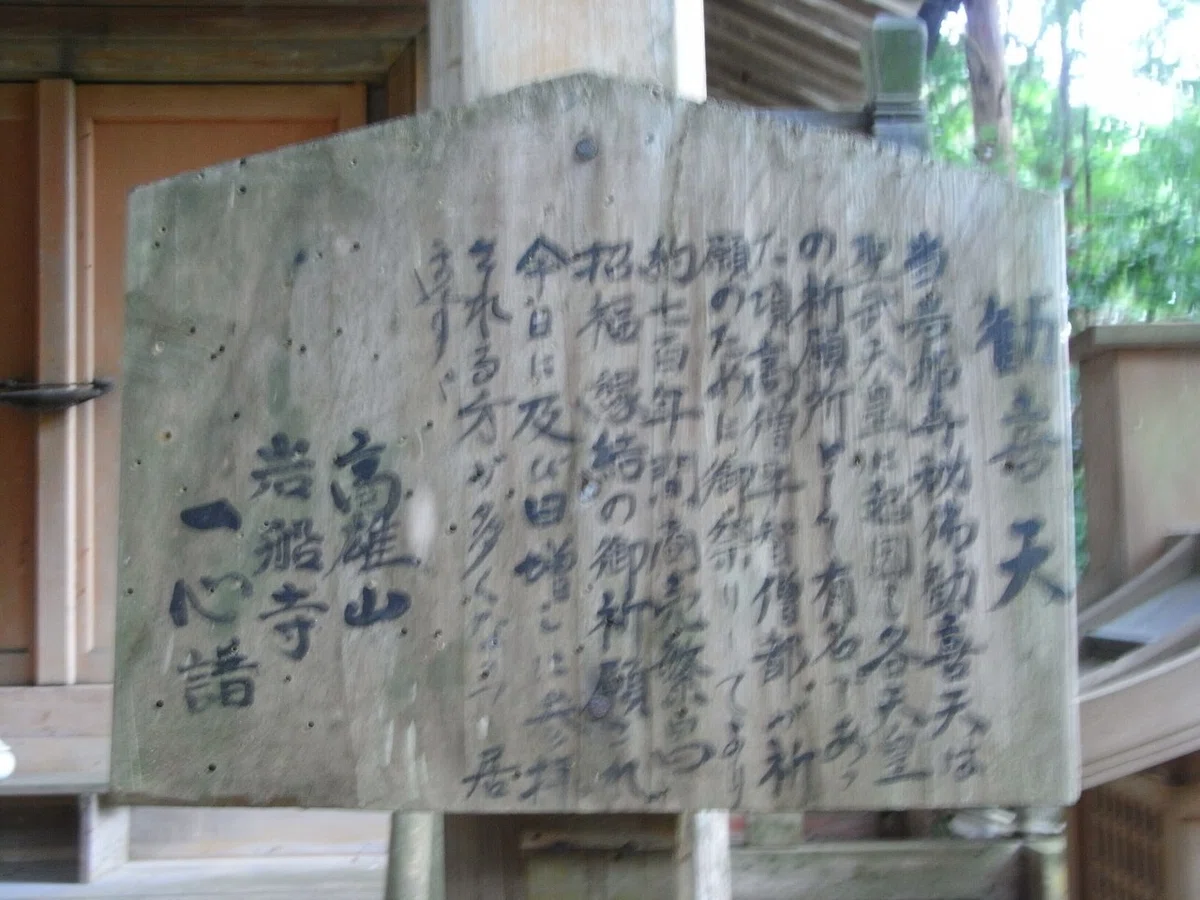 勧喜天
当岩船寺秘佛勧喜天は
聖武天皇に起因して各天皇
の祈願所として有名であっ
た頃高僧平智僧都が祈
願のために御祭りしてより
約七百年間商売繁昌
招福 縁結の御祈願され
今日に及び日増しに参拝
される方が多くなって居
ます
高雄山
岩船寺
一心講